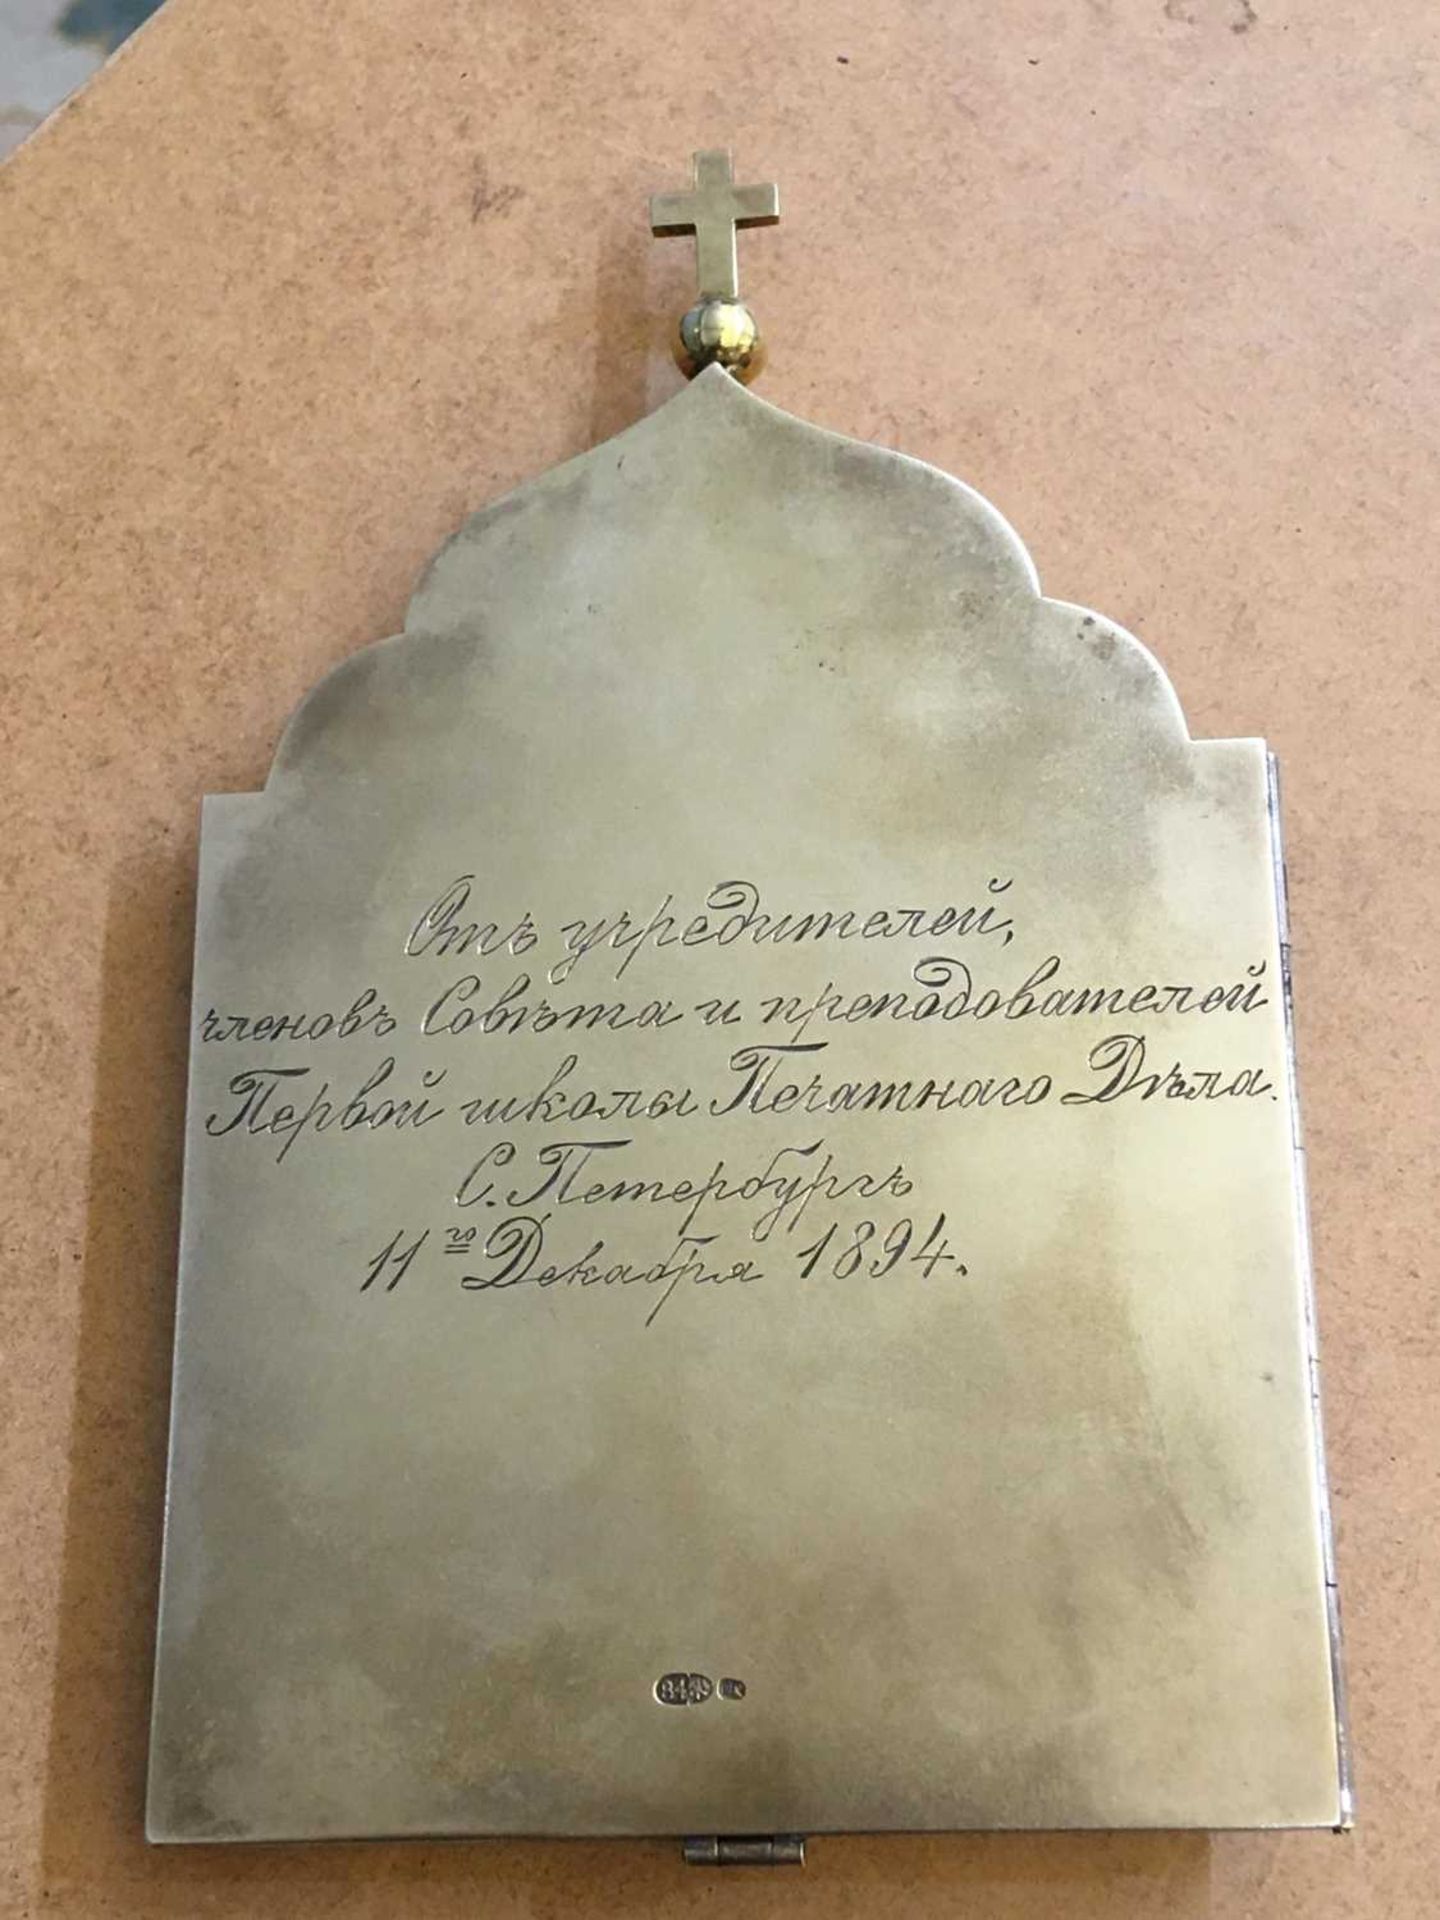 Отъ учредителей,
членовъ Совѣта и преподователей
Первой школы Печатнаго Дѣла.
С. Петербургъ
11го Декабря 1894.
84